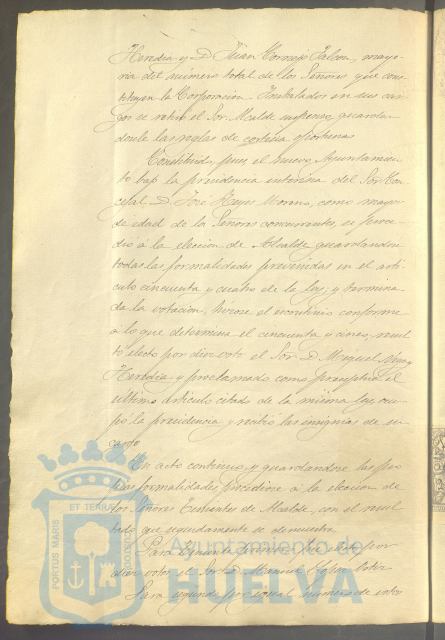 Heredia y D. Juan Cornejo Falcon, mayo-
ria del numero total de los Señores que cons-
tituyen la Corporacion. Instalados en sus car-
gos se retiró el Sor. Alcalde suspenso, guardan-
dosele las reglas de cortesia oportunas
Constituido, pues, el nuevo Ayuntamien-
to bajo la presidencia interina del Sor. Con-
cejal D. José Hayes Moreno, como mayor
de edad de los Señores concurrentes, se proce-
dió á la eleccion de Alcalde guardandose
todas las formalidades prevenidas en el arti-
culo cincuenta y cuatro de la ley; y termina-
da la votacion, hizose el escrutinio conforme
a lo que determina el cincuenta y cinco, resul-
tó electo por diez votos el Sor. D. Miguel
Heredia y proclamado como preceptúa el
ultimo articulo citado de la misma ley, ocu-
pó la presidencia y recibió las insignias de su
cargo
En acto continuo, y guardandose las pro-
pias formalidades procediose á la eleccion de
los Señores Tenientes de Alcalde, con el resul-
tado que seguidamente se demuestra
Para Teniente primero fué electo por
diez votos el Sor. D. Manuel
Para segundo por igual numero de votos
PORTUS MARIS ET TERRAE CUSTODIA
Ayuntamiento de
HUELVA